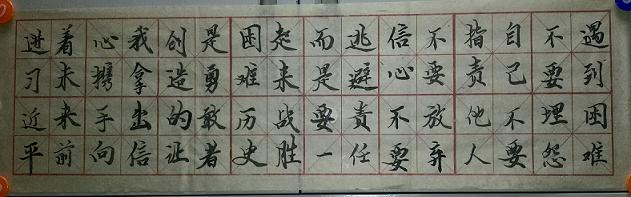 遇到困难
不要埋怨
自己不要
指责他人
不要放弃
信心不要
逃避责任
而是要一
起来战胜
困难历史
是勇敢者
创造的让
我拿出信
心携手向
着未来前
进习近平